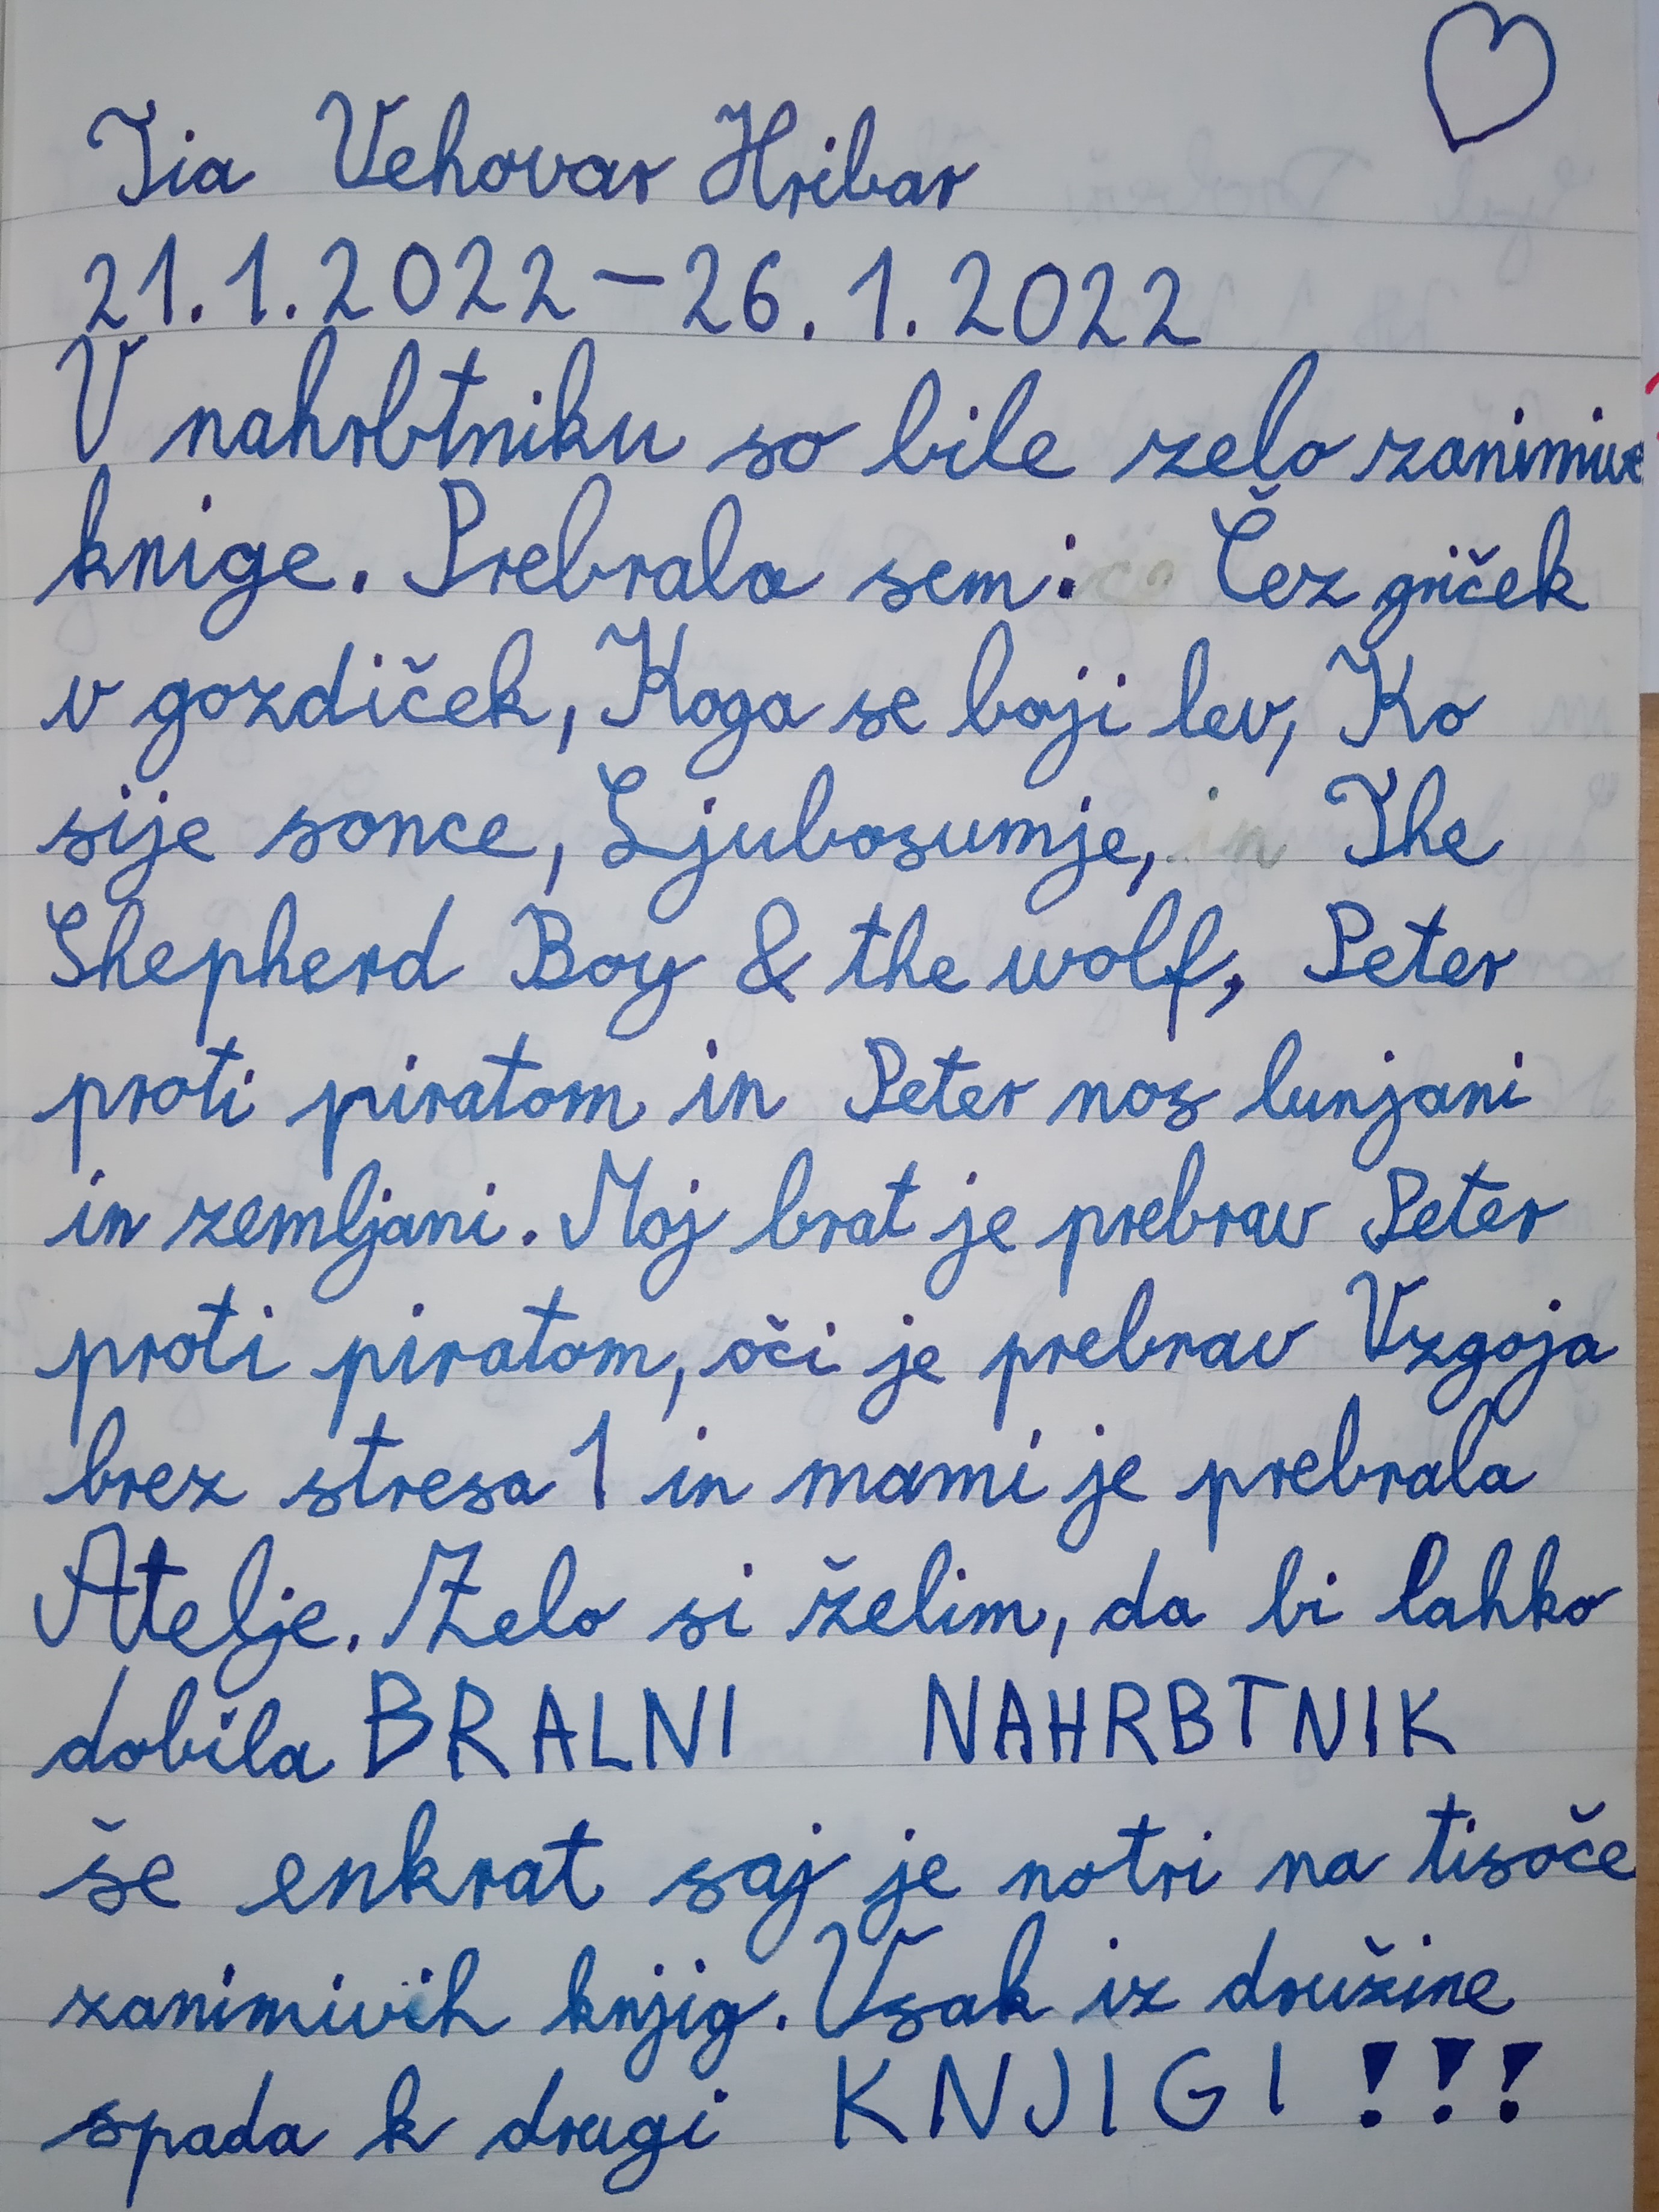 Tia Vehovar Hribar
21.1.2022-26.1.2022
V nahrbtniku so bile zelo zanimive
knige. Prebrala sem: Čez griček
v gozdiček, Koga se boji lev, Ko
sije sonce, Ljubosumje, in The
Shepherd Boy & the wolf, Peter
proti piratom in Peter nos lunjani
in zemljani. Moj brat je prebrav Peter
proti piratom, oči je prebrav Vzgoja
brez stresa 1 in mami je prebrala
Atelje. Zelo si želim, da bi lahko
dobila BRALNI NAHRBTNIK
še enkrat saj je notri na tisoče
zanimivih knjig. Vsak iz družine
spada k drugi KNJIGI!!!